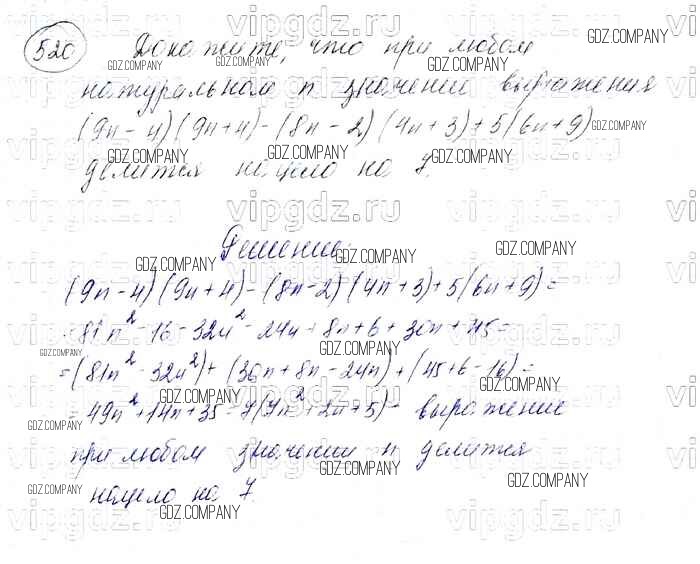 520 Докажите, что при любом
натуральном n значении выражения
(9n-4)(9n+4)-(8n-2)(4n+3)+5(6n+9)
делится нацело на 7.
Решение.
(9n-4)(9n+4)-(8n-2)(4n+3)+5(6n+9)=
=81n²-16-32n²-24n+8n+6+30n+45=
=(81n²-32n²)+(30n+8n-24n)+(45+6-16)=
=49n²+14n+35=7(7n²+2n+5)- выражение
при любом значении n делится
нацело на 7
GDZ.COMPANY
vipgdz.ru